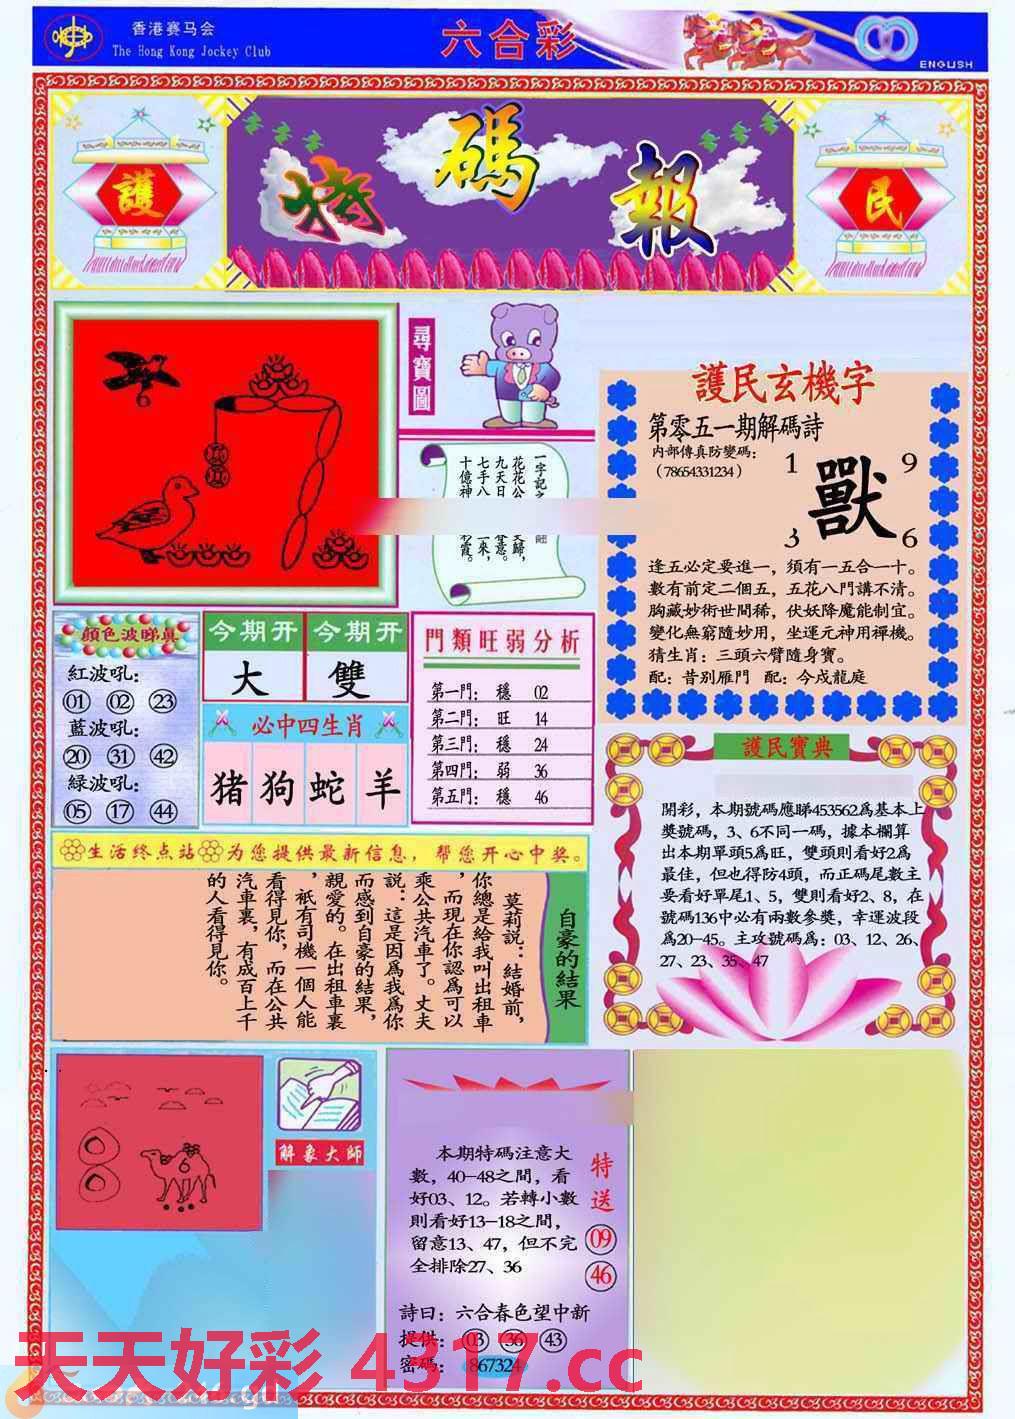 香港赛马会
The Hong Kong Jockey Club
六合彩
ENGLISH
護
特碼報
民
尋寶圖
6
護民玄機字
第零五一期解碼詩
内部傳真防變碼：
（78654331234）
1
9
獸
3
6
逢五必定要進一，須有一五合一十。
數有前定二個五，五花八門講不清。
胸藏妙術世間稀，伏妖降魔能制宜。
變化無窮隨妙用，坐運元神用禪機。
猜生肖：三頭六臂隨身寶。
配：昔别雁門 配：今戍龍庭
一字記之
花花公
九天日
七手八
十億神
歸，
意。
一來，
霞。
顔色波睇真
紅波吼：
01 02 23
藍波吼：
20 31 42
緑波吼：
05 17 44
今期开 今期开
大 雙
必中四生肖
猪 狗 蛇 羊
門類旺弱分析
第一門： 穩 02
第二門： 旺 14
第三門： 穩 24
第四門： 弱 36
第五門： 穩 46
護民寶典
開彩，本期號碼應睇453562爲基本上
獎號碼，3、6不同一碼，據本欄算
出本期單頭5爲旺，雙頭則看好2爲
最佳，但也得防4頭，而正碼尾數主
要看好單尾1、5，雙則看好2、8，在
號碼136中必有兩數參獎，幸運波段
爲20-45。主攻號碼爲：03、12、26、
27、23、35、47
生活终点站 为您提供最新信息，帮您开心中奖。
自豪的結果
莫莉説：結婚前，
你總是給我叫出租車
，而現在你認爲可以
乘公共汽車了。丈夫
説：這是因爲我爲你
而感到自豪的結果，
親愛的。在出租車裏
，衹有司機一個人能
看得見你，而在公共
汽車裏，有成百上千
的人看得見你。
6
解象大師
本期特碼注意大
數，40-48之間，看
好03、12。若轉小數
則看好13-18之間，
留意13、47，但不完
全排除27、36
特送
09
46
詩日：六合春色望中新
提供：03 36 43
密碼：867324
天天好彩 4317.cc